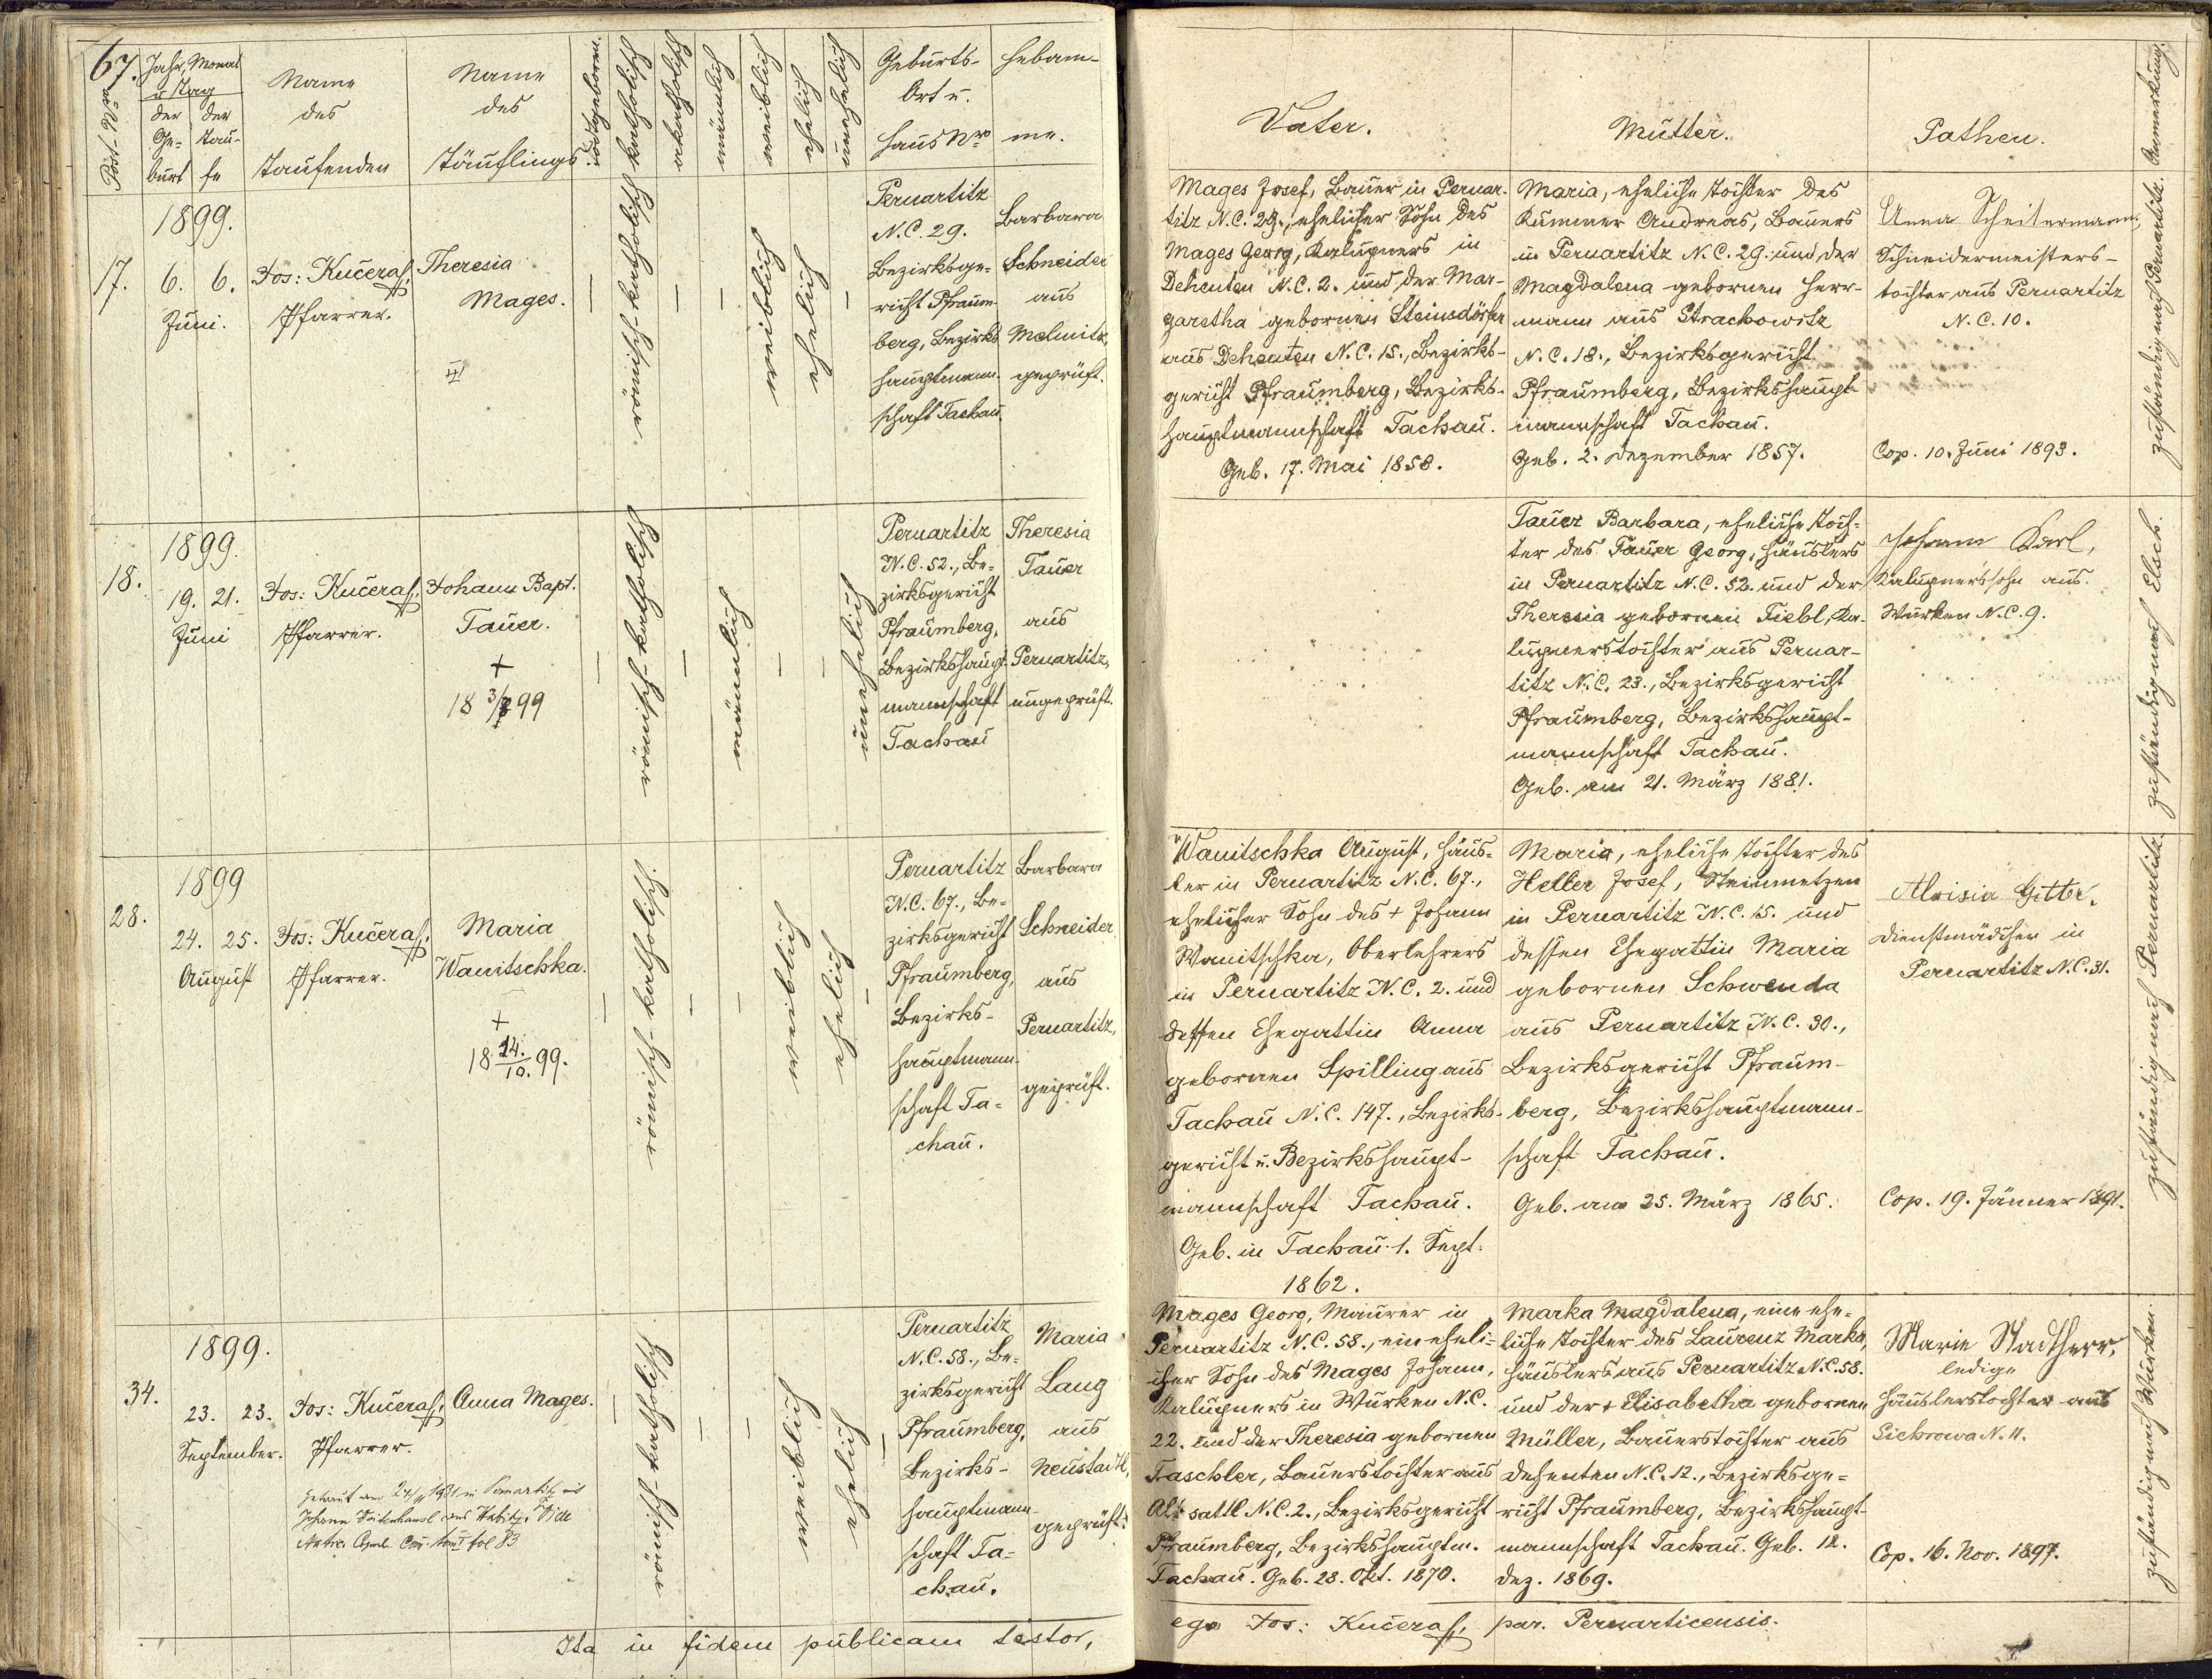 67.
Post-Nro
Jahr, Monat
u Tag
der Ge-
burt
der Tau-
fe
Name
des
Taufenden
Name
des
Täuflings
todtgeboren.
katholisch
akatholisch
männlich
weiblich
ehelich
unehelich
Geburts-
Ort u.
Haus Nro
Hebam-
me.
Vater.
Mutter.
Pathen.
Anmerkung.
1899.
17. 6. 6.
Juni.
Jos: Kučera,
Pfarrer.
Theresia
Mages.
—
römisch-katholisch
—
—
weiblich
ehelich
—
Pernartitz
N.C. 29.
Bezirksge-
richt Pfraum-
berg, Bezirks
hauptmann-
schaft Tachau.
Barbara
Schneider
aus
Melnitz,
geprüft.
Mages Josef, Bauer in Pernar-
titz N.C. 29., ehelicher Sohn des
Mages Georg, Kalupners in
Dehenten N.C. 2. und der Mar-
garetha gebornen Steinsdörfer
aus Dehenten N.C. 15., Bezirks-
gericht Pfraumberg, Bezirks-
hauptmannschaft Tachau.
Geb. 17. Mai 1858.
Maria, eheliche Tochter des
Kummer Andreas, Bauers
in Pernartitz N.C. 29. und der
Magdalena gebornen Herr-
mann aus Strachowitz
N.C. 18., Bezirksgericht
Pfraumberg, Bezirkshaupt-
mannschaft Tachau.
Geb. 2. Dezember 1857.
Anna Scheitermann,
Schneidermeisters-
tochter aus Pernartitz
N.C. 10.
Cop. 10. Juni 1893.
zuständig nach Pernartitz.
1899.
18. 19. 21.
Juni
Jos: Kučera,
Pfarrer.
Johann Bapt.
Tauer.
+
18 3/7 99
—
römisch-katholisch
—
männlich
—
—
unehelich
Pernartitz
N.C. 52., Be-
zirksgericht
Pfraumberg,
Bezirkshaupt-
mannschaft
Tachau
Theresia
Tauer
aus
Pernartitz,
ungeprüft.
Tauer Barbara, eheliche Toch-
ter des Tauer Georg, Häuslers
in Pernartitz N.C. 52. und der
Theresia gebornen Fiebl, Ka-
lupnerstochter aus Pernar-
titz N.C. 23., Bezirksgericht
Pfraumberg, Bezirkshaupt-
mannschaft Tachau.
Geb. am 21. März 1881.
Johann Karl,
Kalupnerssohn aus
Wurken N.C. 9.
zuständig nach Elsch.
1899
28. 24. 25.
August
Jos: Kučera,
Pfarrer.
Maria
Wanitschka.
+
18 24./10. 99.
—
römisch-katholisch.
—
—
weiblich
ehelich
—
Pernartitz
N.C. 67., Be-
zirksgericht
Pfraumberg,
Bezirks-
hauptmann-
schaft Ta-
chau.
Barbara
Schneider
aus
Pernartitz,
geprüft.
Wanitschka August, Häus-
ler in Pernartitz N.C. 67.,
ehelicher Sohn des + Johann
Wanitschka, Oberlehrers
in Pernartitz N.C. 2. und
dessen Ehegattin Anna
gebornen Spilling aus
Tachau N.C. 147., Bezirks-
gericht u. Bezirkshaupt-
mannschaft Tachau.
Geb. in Tachau 1. Sept.
1862.
Maria, eheliche Tochter des
Heller Josef, Steinmetzen
in Pernartitz N.C. 15. und
dessen Ehegattin Maria
gebornen Schwenda
aus Pernartitz N.C. 30.,
Bezirksgericht Pfraum-
berg, Bezirkshauptmann-
schaft Tachau.
Geb. am 25. März 1865.
Aloisia Gitter,
Dienstmädchen in
Pernartitz N.C. 31.
Cop. 19. Jänner 1891.
zuständig nach Pernartitz.
1899.
34. 23. 23.
September.
Jos: Kučera,
Pfarrer.
Anna Mages.
Getraut am 1931 in Pernartitz mit
Johann aus Vide
Matric. Copul. tom I fol 83
—
römisch-katholisch
—
—
weiblich
ehelich
—
Pernartitz
N.C. 58., Be-
zirksgericht
Pfraumberg,
Bezirks-
hauptmann-
schaft Ta-
chau.
Maria
Lang
aus
Neustadtl,
geprüft.
Mages Georg, Maurer in
Pernartitz N.C. 58., ein eheli-
cher Sohn des Mages Johann,
Kalupners in Wurken N.C.
22. und der Theresia gebornen
Taschler, Bauerstochter aus
Altsattl N.C. 2., Bezirksgericht
Pfraumberg, Bezirkshauptm.
Tachau. Geb. 28. Okt. 1870.
Marka Magdalena, eine ehe-
liche Tochter des Laurenz Marka,
Häuslers aus Pernartitz N.C. 58.
und der + Elisabetha gebornen
Müller, Bauerstochter aus
Dehenten N.C. 12., Bezirksge-
richt Pfraumberg, Bezirkshaupt-
mannschaft Tachau. Geb. 12.
Dez. 1869.
Marie Stadtherr,
ledige
Häuslerstochter aus
Sichrowa N. 11.
Cop. 16. Nov. 1897.
zuständig nach Wurken.
Ita in fidem publicam testor,
ego Jos: Kučera, par. Pernarticensis.